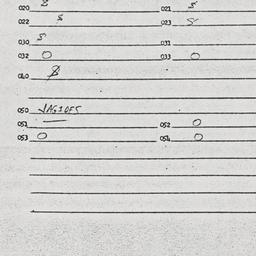 020 8 021 5
022 5 023 5
030 5 031
032 0 033 0
040 8
050 JAG10F5
051 — 052 0
053 0 054 0